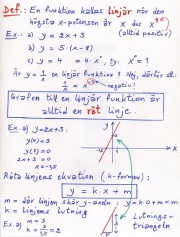 Def.: En funktion kallas linjär när den
högsta x-potensen är x dvs x¹
(alltid positiv)
Ex: a) y = 2x + 3
b) y = 5·(x-8)
c) y = 4 = 4·x⁰, ty: x⁰ = 1
Är y = 1/x en linjär funktion? Nej, därför att:
1/x = x⁻¹
negativ!
Grafen till en linjär funktion är
alltid en rät linje.
Ex: a) y = 2x + 3:
y(0) = 3
y(x) = 0
2x + 3 = 0
x = -1,5
Räta linjens ekvation (k-formen):
y = k·x + m
m = där linjen skär y-axeln
k = linjens lutning
Ex: a) m = 3
Lutnings-
triangeln